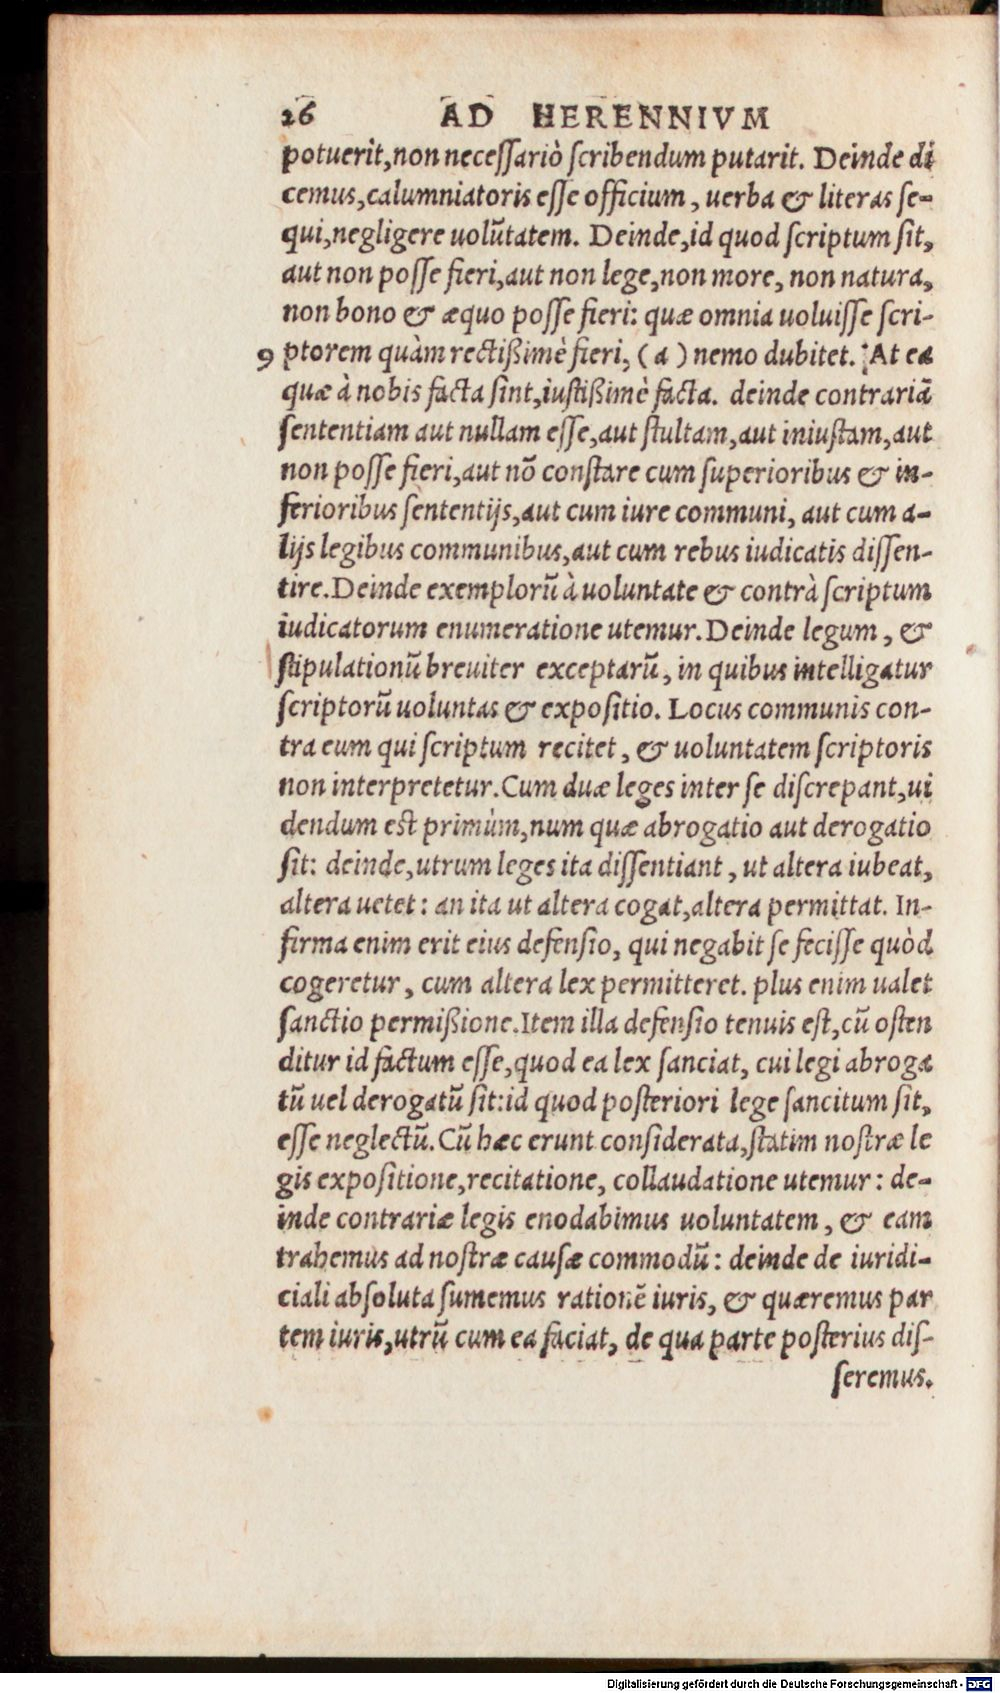 26 AD HERENNIVM
potuerit,non necessariò scribendum putarit. Deinde di
cemus,calumniatoris esse officium, uerba & literas se-
qui,negligere uolūtatem. Deinde,id quod scriptum sit,
aut non posse fieri,aut non lege,non more, non natura,
non bono & æquo posse fieri: quæ omnia uoluisse scri-
9 ptorem quàm rectißimè fieri, (a) nemo dubitet. At ea
quæ à nobis facta sint,iustißimè facta. deinde contrariā
sententiam aut nullam esse,aut stultam,aut iniustam,aut
non posse fieri,aut nō constare cum superioribus & in-
ferioribus sententijs,aut cum iure communi, aut cum a-
lijs legibus communibus,aut cum rebus iudicatis dissen-
tire.Deinde exemplorū à uoluntate & contrà scriptum
iudicatorum enumeratione utemur.Deinde legum, &
stipulationū breuiter exceptarū, in quibus intelligatur
scriptorū uoluntas & expositio. Locus communis con-
tra eum qui scriptum recitet, & uoluntatem scriptoris
non interpretetur.Cum duæ leges inter se discrepant,ui
dendum est primùm,num quæ abrogatio aut derogatio
sit: deinde,utrum leges ita dissentiant, ut altera iubeat,
altera uetet: an ita ut altera cogat,altera permittat. In-
firma enim erit eius defensio, qui negabit se fecisse quòd
cogeretur, cum altera lex permitteret. plus enim ualet
sanctio permißione.Item illa defensio tenuis est,cū osten
ditur id factum esse,quod ea lex sanciat, cui legi abroga
tū uel derogatū sit:id quod posteriori lege sancitum sit,
esse neglectū.Cū hæc erunt considerata,statim nostræ le
gis expositione,recitatione, collaudatione utemur: de-
inde contrariæ legis enodabimus uoluntatem, & eam
trahemus ad nostræ causæ commodū: deinde de iuridi-
ciali absoluta sumemus rationē iuris, & quæremus par
tem iuris,utrū cum ea faciat, de qua parte posterius dis-
seremus.
Digitalisierung gefördert durch die Deutsche Forschungsgemeinschaft - DFG